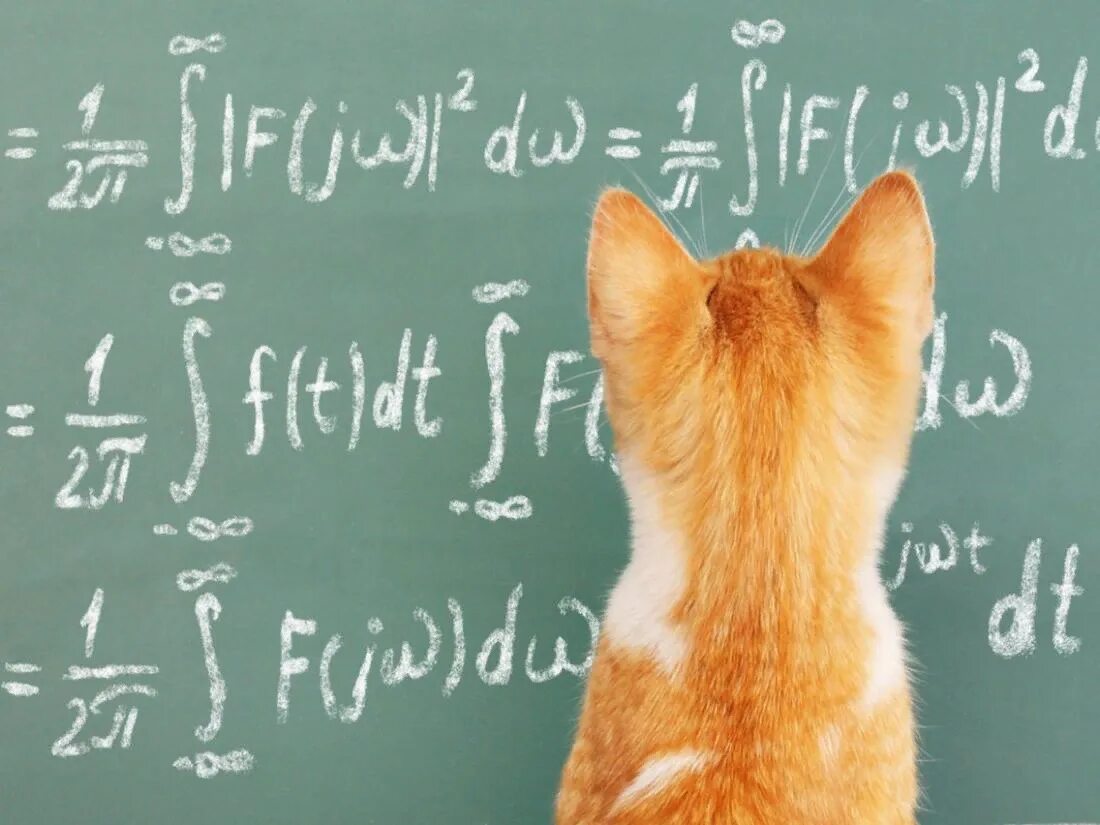 = 1/2π ∫_{-∞}^{∞} |F(jω)|² dω = 1/π ∫_{0}^{∞} |F(jω)|² d
= 1/2π ∫_{-∞}^{∞} f(t)dt ∫_{-∞}^{∞} F( dω
= 1/2π ∫_{-∞}^{∞} F(jω)dω jωt dt